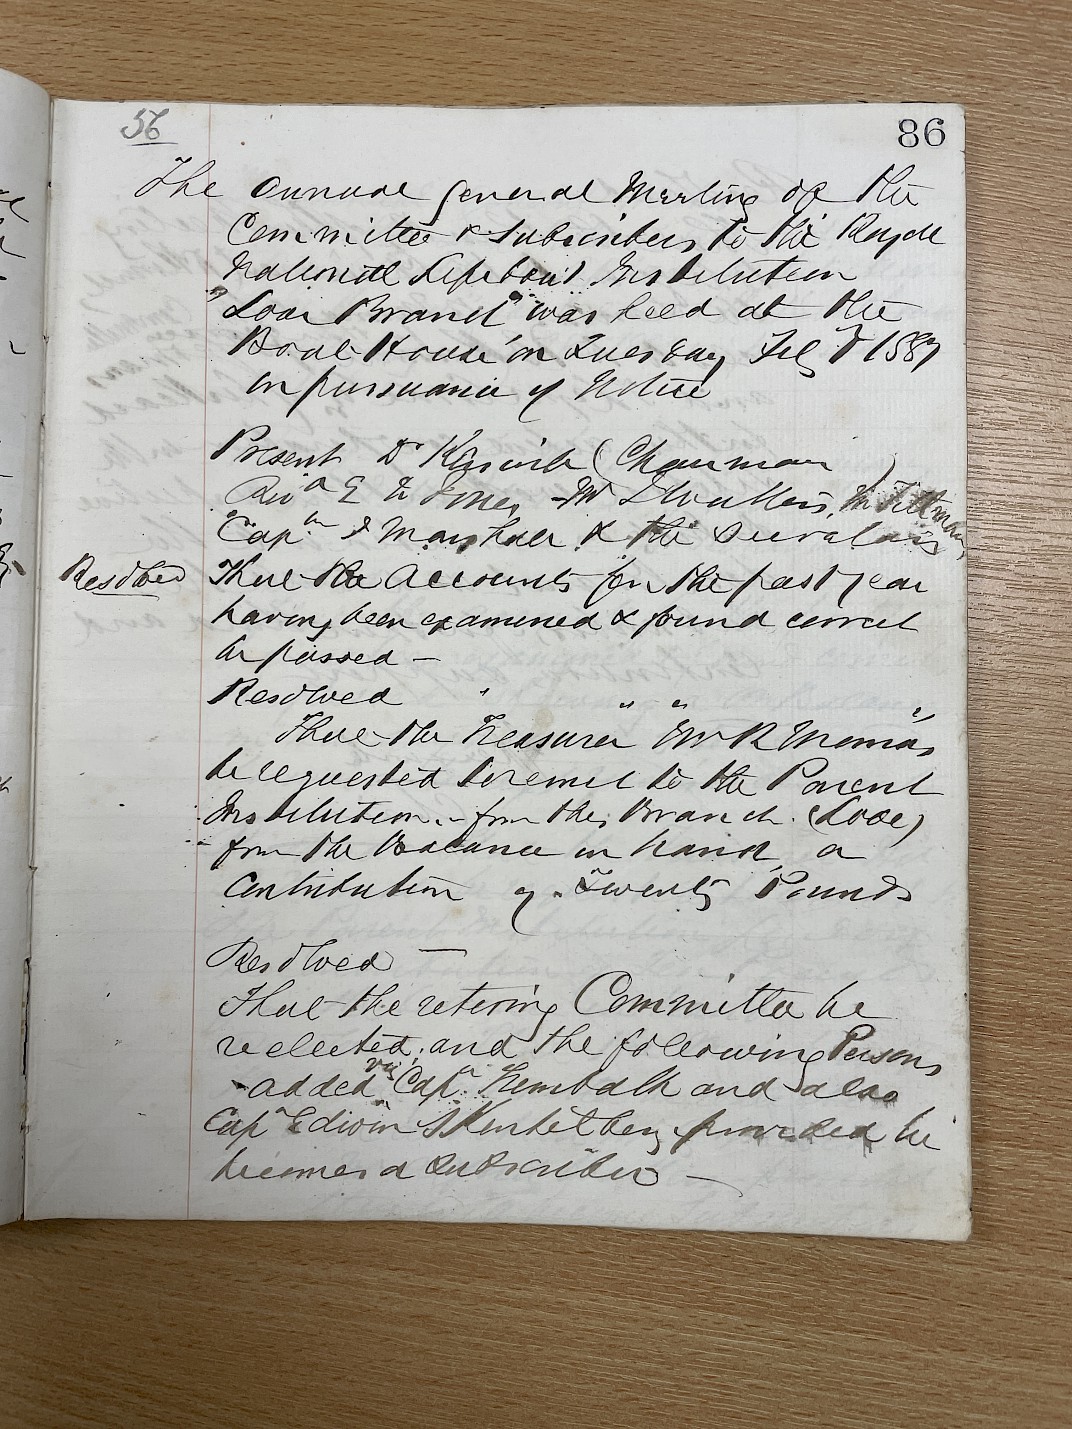 56
86
The annual general Meeting of the
Committee & Subscribers to the Royal
National Lifeboat Institution
"Looe Branch" was held at the
Boat House on Tuesday Feb 1887
in pursuance of Notice
Present Dr (Chairman)
Revd E Jones Mr
Capn Marshall & the Secretary
Resolved That the Accounts for the past year
having been examined & found correct
be passed —
Resolved " " " "
That the Treasurer Mr R Thomas
be requested to remit to the Parent
Institution from this Branch (Looe)
from the Balance in hand, a
Contribution of Twenty Pounds
Resolved —
That the retiring Committee be
reelected, and the following Persons
added viz Capn and also
Capn Edwin provided he
becomes a Subscriber —